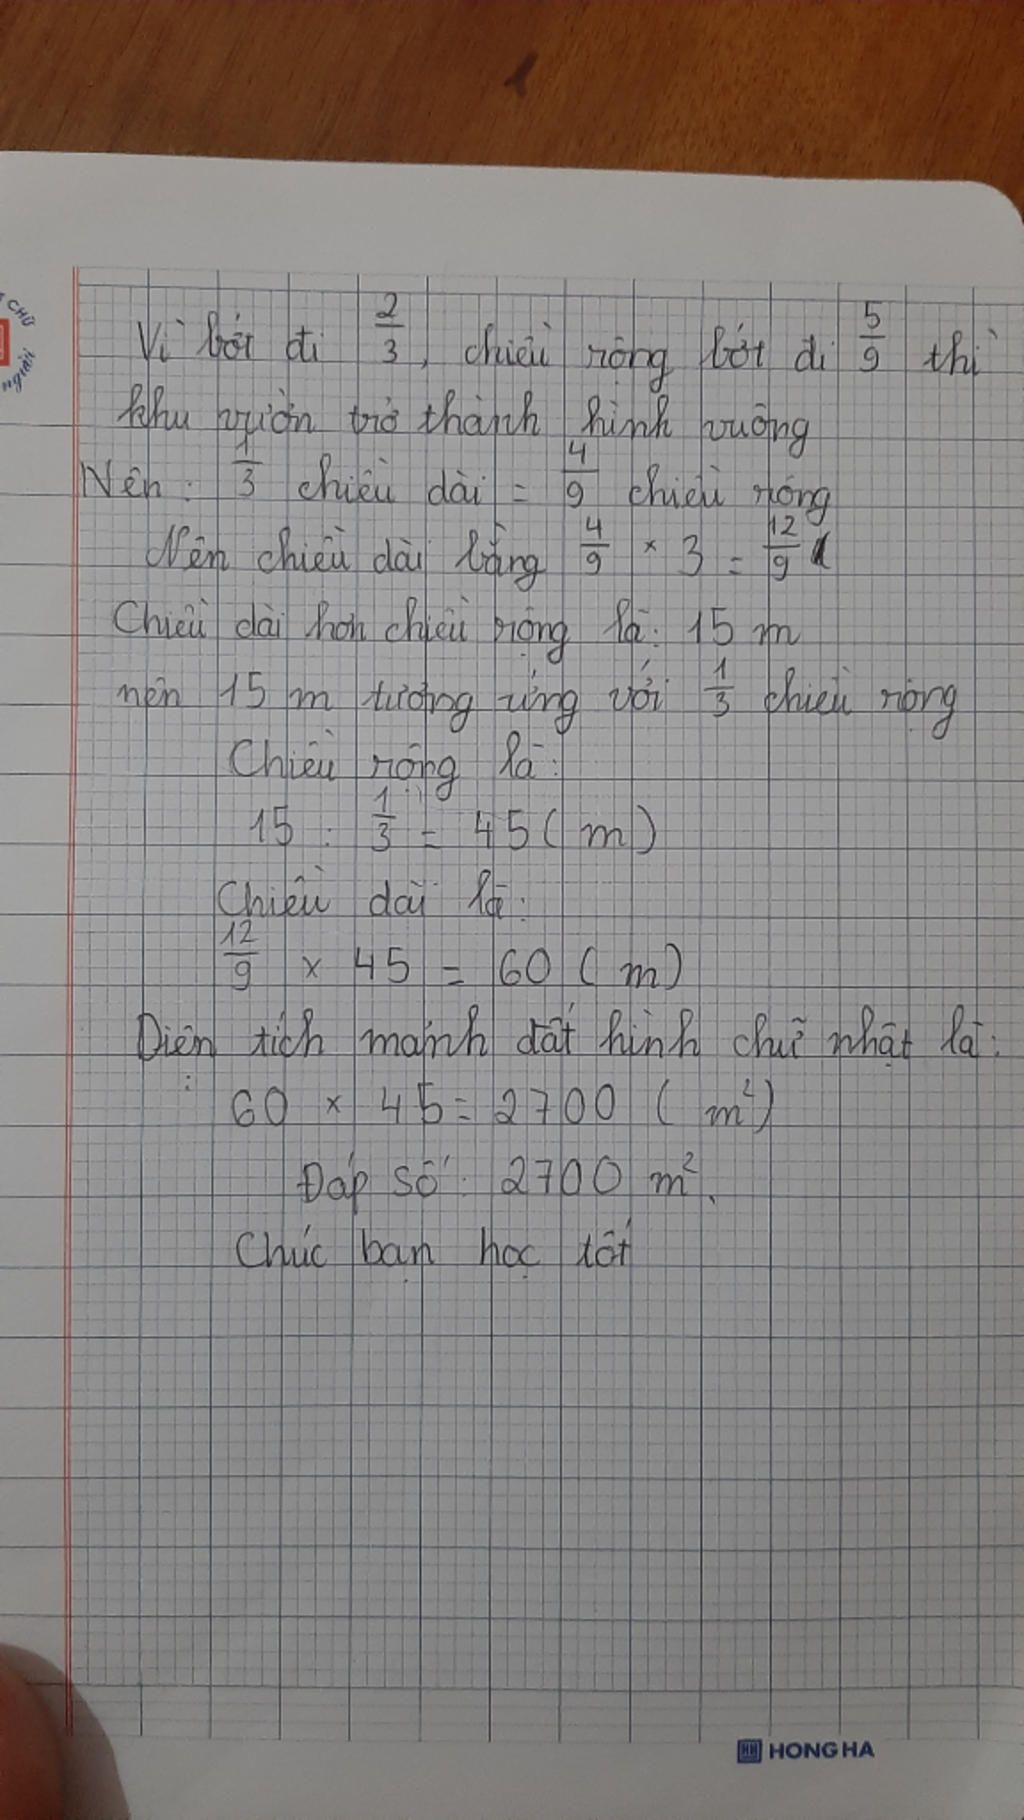 CHỮ
người
Vì bớt đi 2/3, chiều rộng bớt đi 5/9 thì
khu vườn trở thành hình vuông
Nên: 1/3 chiều dài = 4/9 chiều rộng
Nên chiều dài bằng 4/9 × 3 = 12/9
Chiều dài hơn chiều rộng là: 15 m
nên 15 m tương ứng với 1/3 chiều rộng
Chiều rộng là:
15 : 1/3 = 45 (m)
Chiều dài là:
12/9 × 45 = 60 (m)
Diện tích mảnh đất hình chữ nhật là:
60 × 45 = 2700 (m²)
Đáp số: 2700 m².
Chúc bạn học tốt
HH HONG HA